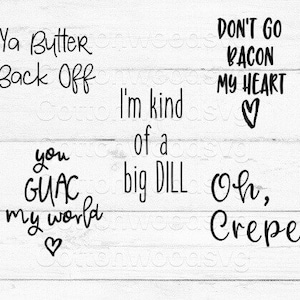 Ya Butter
Back Off
DON'T GO
BACON
MY HEART
I'm kind
of a
big DILL
you
GUAC
my world
Oh,
Crepe